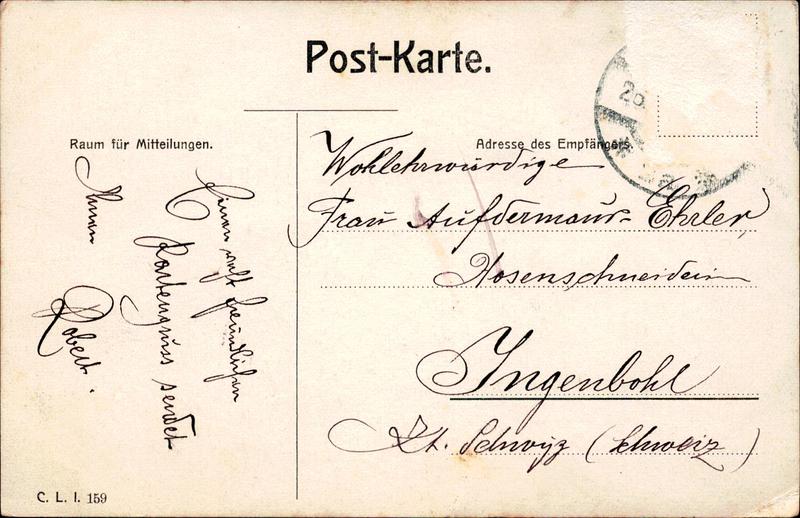 Post-Karte.
Raum für Mitteilungen.
Adresse des Empfängers.
Einen recht freundlichen
Kartengruss sendet
Ihnen
Robert.
Wohlehrwürdige
Frau Aufdermaur-Ehrler,
Hosenschneiderin
Ingenbohl
Kt. Schwyz (Schweiz)
C. L. I. 159